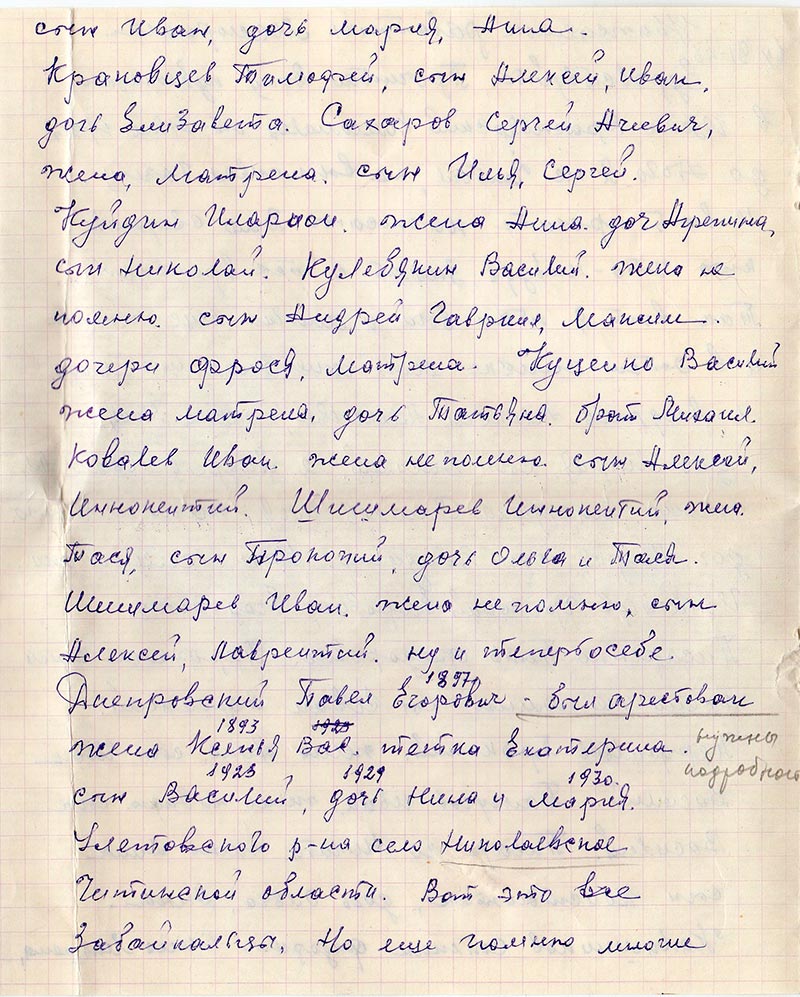 сын Иван, дочь Мария, Анна.
Крановцев Тимофей, сын Алексей, Иван,
дочь Елизавета. Сахаров Сергей
жена, Матрена. сын Илья, Сергей.
Куйдин Иларион. жена Анна. доч Агрепина,
сын Николай. Кулевякин Василий. жена не
помню. сын Андрей Гаврил, Максим
дочери Фрося, Матрена. Куценко Василий
жена Матрена, дочь Татьяна. брат Михаил.
Ковалев Иван. жена не помню. сын Алексей,
Иннокентий. Шишмарев Иннокентий, жена
Тася, сын Прокопий, дочь Ольга и Тася.
Шишмарев Иван. жена не помню, сын
Алексей, Лаврентий. ну и теперь о себе.
1897
Днепровский Павел Егорович - был арестован
1893 1923
жена Ксенья Вас. тетка Екатерина. нужны
подробност
1923 1929 1930.
сын Василий, дочь Нина и Мария.
Улетовского р-на село Николаевское
Читинской области. Вот это все
Забайкальцы. Но еще помню многие